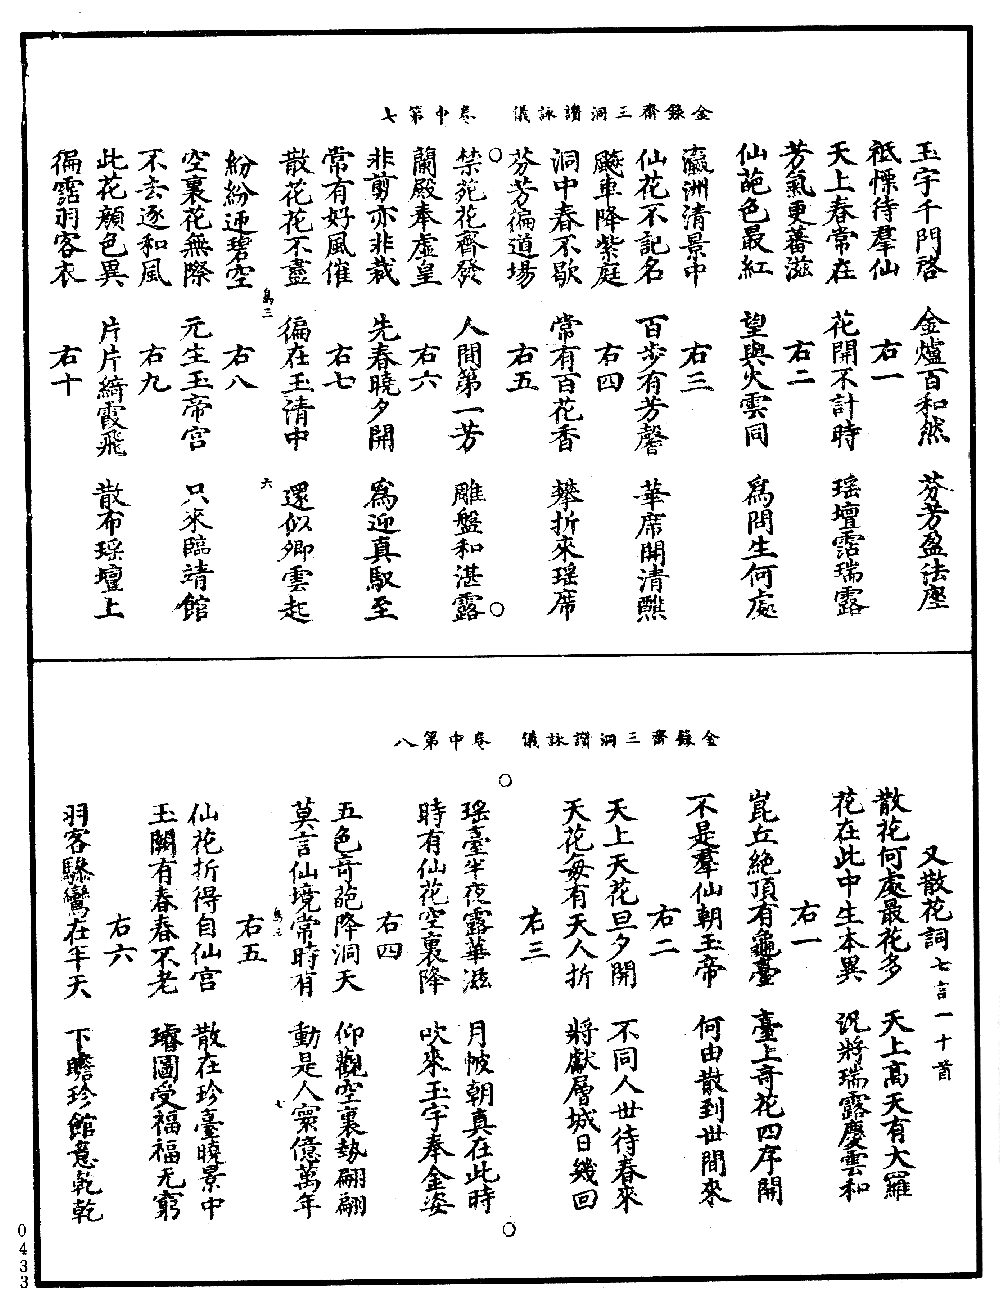 金籙齋三洞讚詠儀　卷中第七
玉宇千門啓　金爐百和然　芬芳盈法座
祗慄待羣仙　右一
天上春常在　花開不計時　瑶壇霑瑞露
芳氣更蕃滋　右二
仙葩色最紅　望與火雲同　爲問生何處
瀛洲清景中　右三
仙花不記名　百步有芳馨　華席開清醮
飈車降紫庭　右四
洞中春不歇　常有百花香　攀折來瑶席
芬芳徧道場　右五
禁苑花齊發　人間第一芳　雕盤和湛露
蘭殿奉虛皇　右六
非剪亦非栽　先春曉夕開　爲迎真馭至
常有好風催　右七
散花花不盡　徧在玉清中　還似卿雲起
紛紛迊碧空　右八
空裏花無際　元生玉帝宮　只來臨靖館
不去逐和風　右九
此花顏色異　片片綺霞飛　散布瑶壇上
徧霑羽客衣　右十
金籙齋三洞讚詠儀　卷中第八
又散花詞七言一十首
散花何處最花多　天上高天有大羅
花在此中生本異　況將瑞露慶雲和
右一
崑丘絶頂有龜臺　臺上奇花四序開
不是羣仙朝玉帝　何由散到世間來
右二
天上天花旦夕開　不同人世待春來
天花每有天人折　將獻層城日幾回
右三
瑶臺半夜露華滋　月帔朝真在此時
時有仙花空裏降　吹來玉宇奉金姿
右四
五色奇葩降洞天　仰觀空裏勢翩翩
莫言仙境常時有　動是人寰億萬年
右五
仙花折得自仙宮　散在珍臺曉景中
玉闕有春春不老　璿圖受福福无窮
右六
羽客驂鸞在半天　下瞻珍館意乾乾
0433